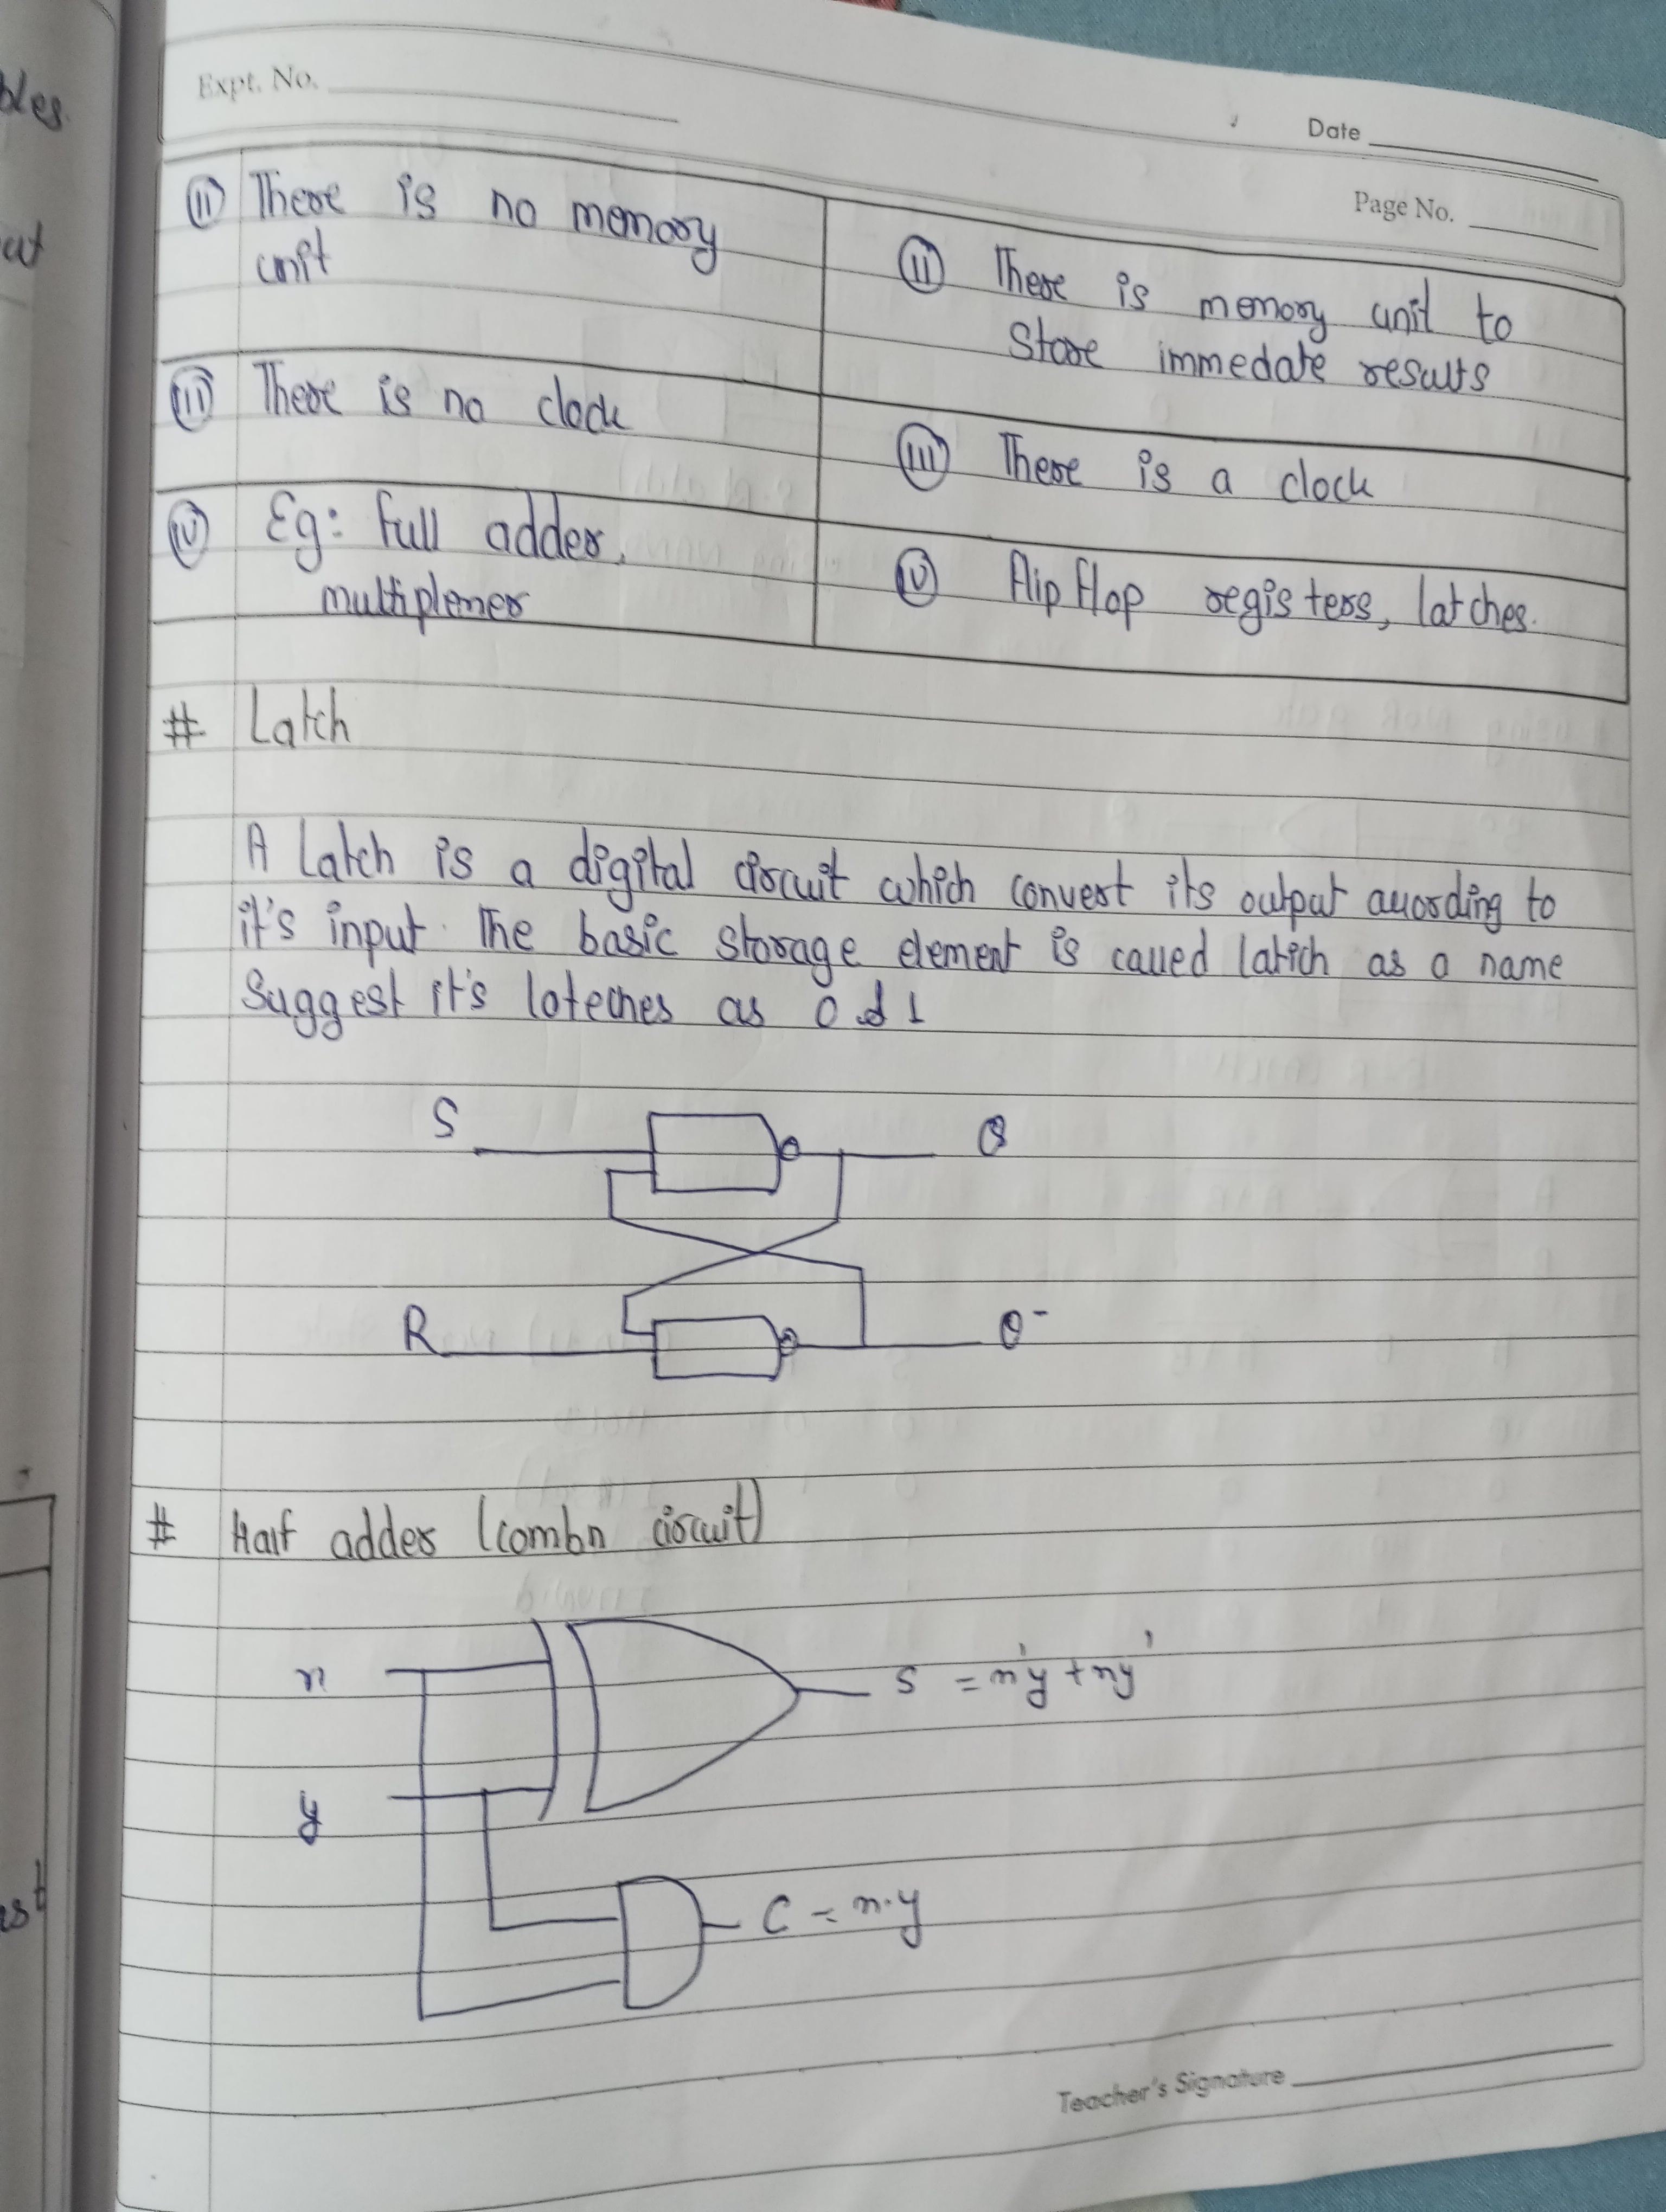 Expt. No.
Date
Page No.
bles.
ut
(II) There is no memory
unit
(II) There is memory unit to
store immedate results
(III) There is no clock
(III) There is a clock
(IV) Eg: full adder,
multiplexer
(IV) flip flop registers, latches.
# Latch
A Latch is a digital circuit which convert its output according to
it's input. The basic storage element is called latich as a name
suggest it's lateches as 0 & 1
S
Q
R
Q-
# Half adder (combn circuit)
x
S = x'y + xy'
y
C = x.y
Teacher's Signature